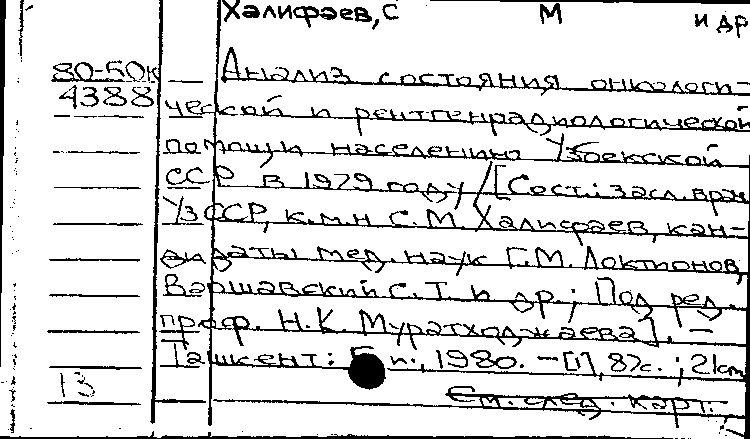 Халифаев, С М и др
80-50к Анализ состояния онкологи-
4388 ческой и рентгенрадиологической
помощи населению Узбекской
ССР в 1979 году / [Сост.: засл. врач
УзССР, к.м.н С.М. Халифаев, кан-
дидаты мед. наук Г.М. Локтионов,
Варшавский С.Т. и др.; Под ред.
проф. Н.К. Муратходжаева]. —
Ташкент: Б.и., 1980. — [1], 87с.; 21см
13 См. след. карт.